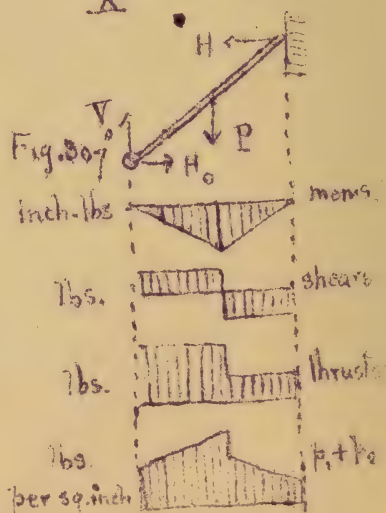 X
H
V₀
P
Fig. 307
H₀
inch-lbs
moms.
lbs.
shears
lbs.
thrusts
lbs.
per sq. inch
p₁+p₂